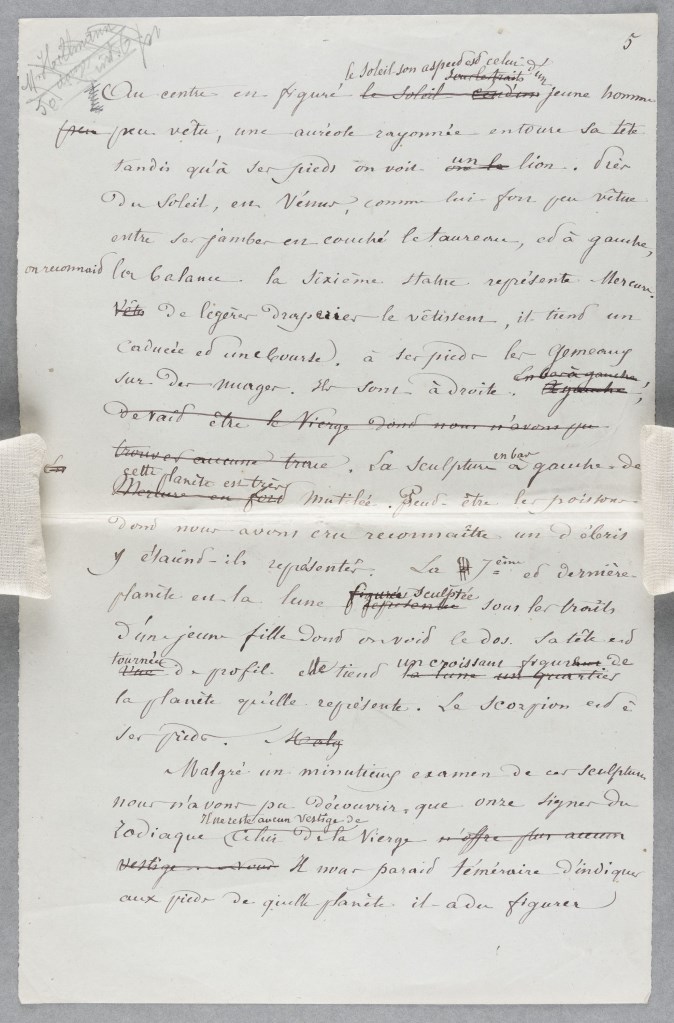 5
le Soleil son aspect est celui d'un
sous les traits
Au centre est figuré le soleil jeune homme
peu peu vêtu, une auréole rayonnée entoure sa tête
tandis qu'à ses pieds on voit un le lion. Près
du Soleil, est Vénus, comme lui fort peu vêtue
entre ses jambes est couché le taureau, et à gauche,
on reconnait les balance. la sixième statue représente Mercure.
Vêtu de légères draperies le vêtissent, il tient un
caducée et une bourse. à ses pieds les Gemeaux
sur des nuages. Ils sont à droite. en bas à gauche
à gauche,
devait être le Vierge dont nous n'avons pu
trouver aucune trace. La sculpture en bas à gauche de
cette planète est très
Mercure est fort mutilée. Peut-être les poissons
dont nous avons cru reconnaître un débris
y étaient-ils représentés. La 7ème et dernière
planète est la lune figurée sculptée représentée sous les traits
d'une jeune fille dont on voit le dos. Sa tête est
tournée
vue de profil. elle tient un croissant figure de
la lune un quartier
la planète qu'elle représente. Le scorpion est à
ses pieds. Malg
Malgré un minutieux examen de ces sculptures
nous n'avons pu découvrir que onze signes du
Il ne reste aucun vestige de
Zodiaque Celui de la Vierge n'offre plus aucun
vestige Il nous parait téméraire d'indiquer
aux pieds de quelle planète il a du figurer